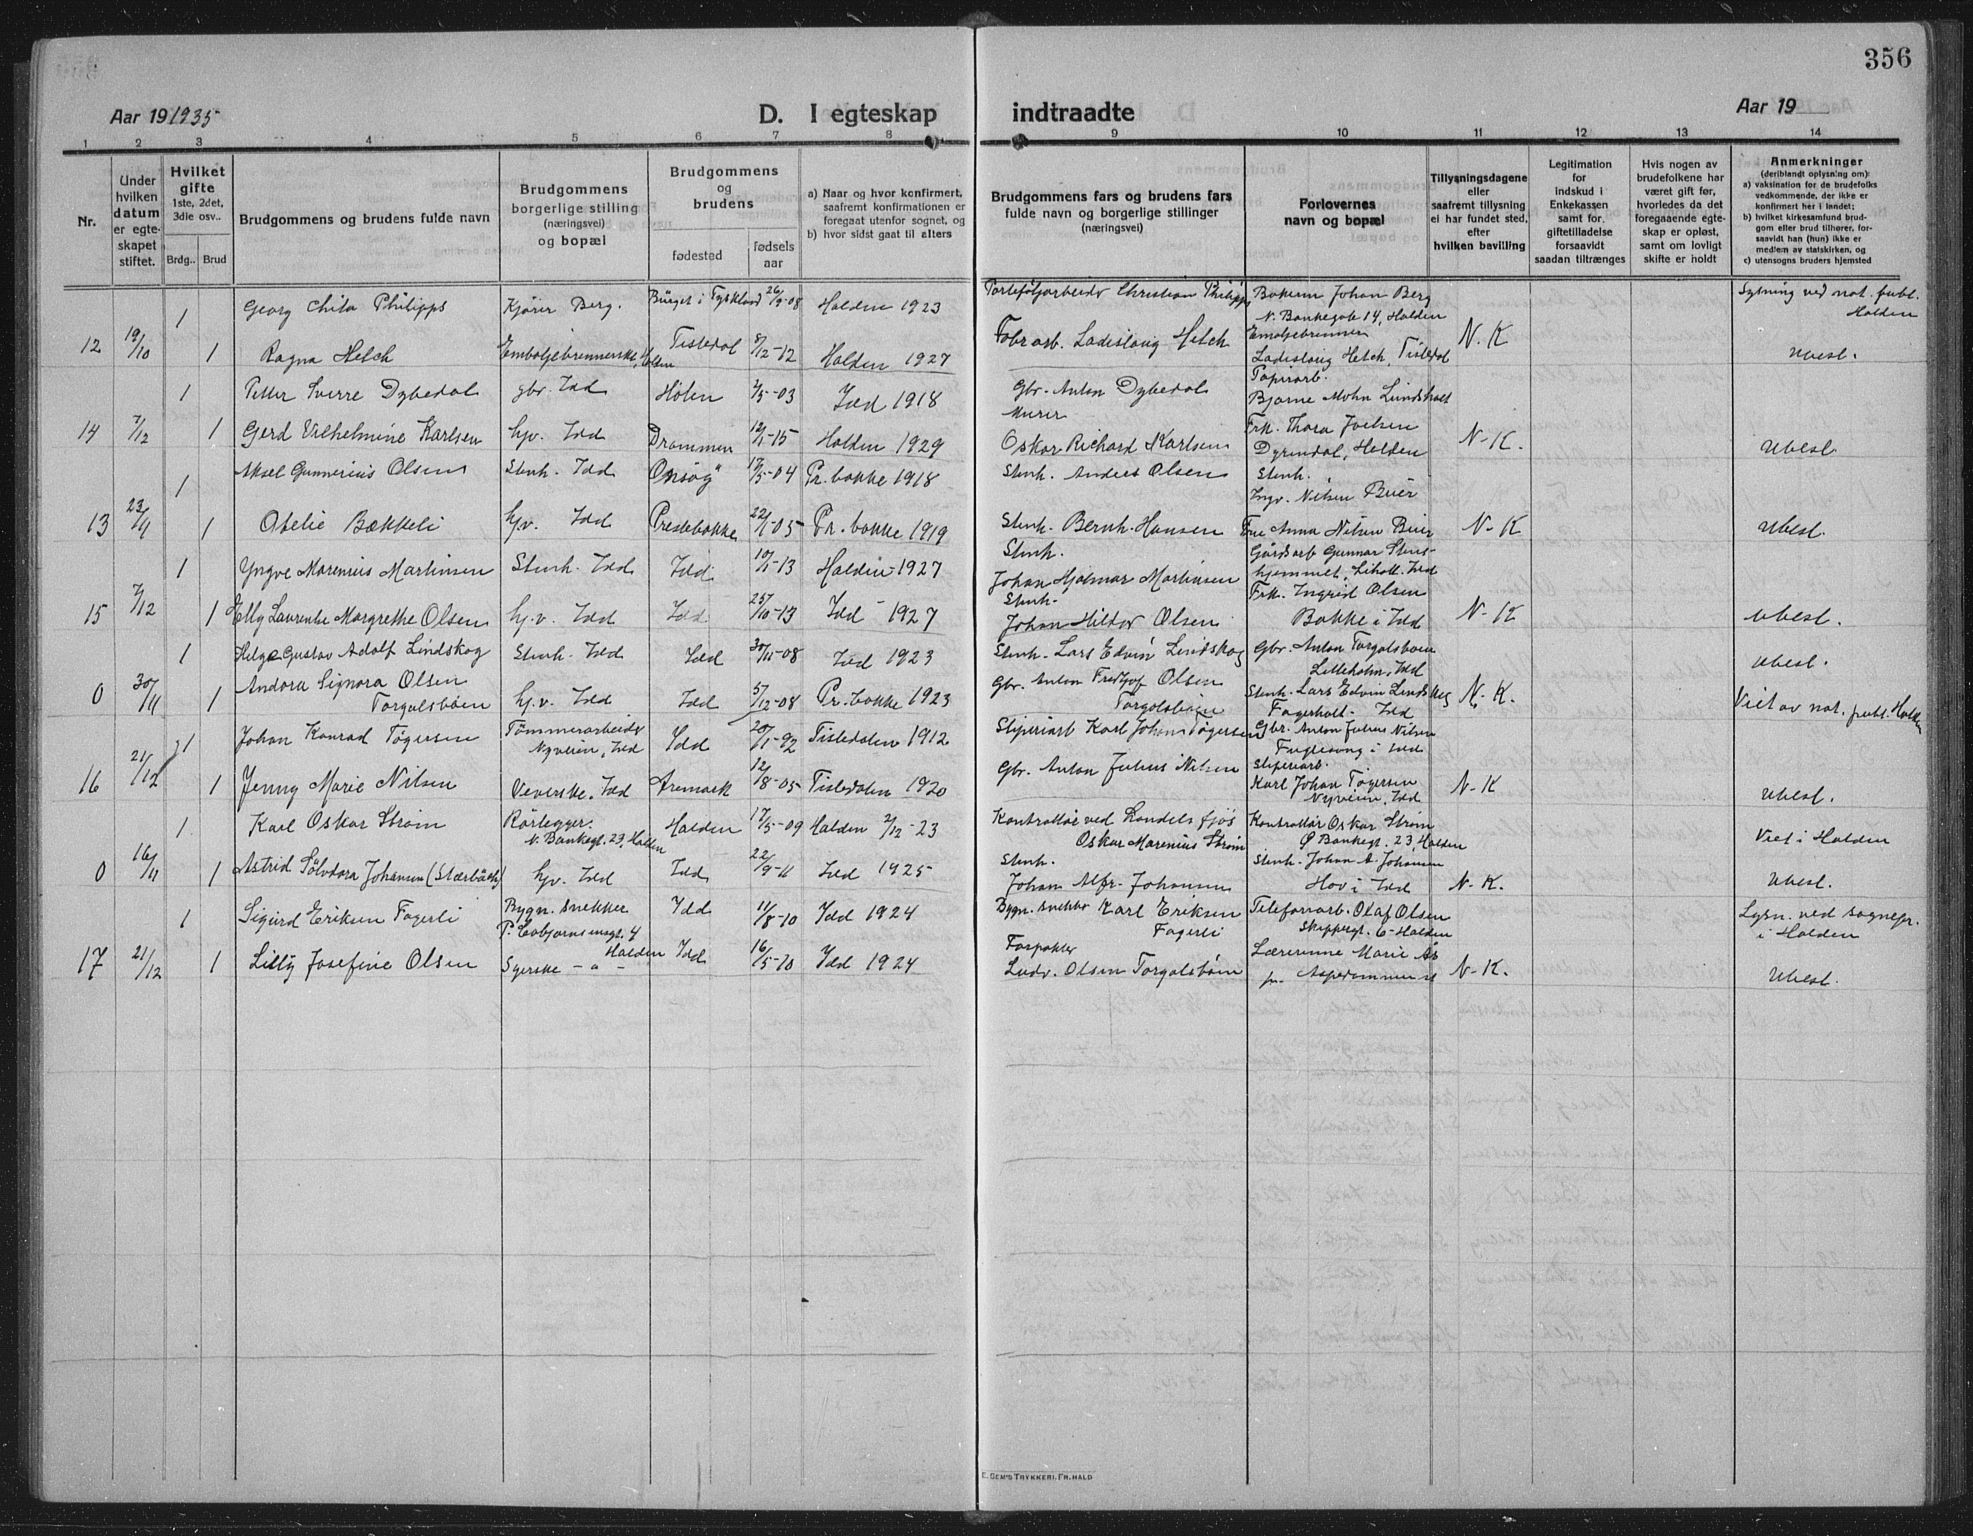 356
Aar 19 1935
D. I egteskap indtraadte
Aar 19
1 2 3 4 5 6 7 8 9 10 11 12 13 14
Nr.
Under hvilken datum er egteskapet stiftet.
Hvilket gifte 1ste, 2det, 3die osv..
Brdg.. Brud
Brudgommens og brudens fulde navn
Brudgommens borgerlige stilling (næringsvei) og bopæl
Brudgommens og brudens
fødested
fødsels aar
a) Naar og hvor konfirmert, saafremt konfirmationen er foregaat utenfor sognet, og
b) hvor sidst gaat til alters
Brudgommens fars og brudens fars fulde navn og borgerlige stillinger (næringsvei)
Forlovernes navn og bopæl
Tillysningsdagene eller saafremt tillysning ei har fundet sted, efter hvilken bevilling
Legitimation for indskud i Enkekassen samt for giftetilladelse forsaavidt saadan tiltrænges
Hvis nogen av brudefolkene har været gift før, hvorledes da det foregaaende egteskap er opløst, samt om lovligt skifte er holdt
Anmerkninger (deriblandt oplysning om):
a) vaksination for de brudefolks vedkommende, der ikke er konfirmert her i landet;
b) hvilket kirkesamfund brudgom eller brud tilhører, forsaavidt han (hun) ikke er medlem av statskirken, og
c) utensogns bruders hjemsted
1 Georg Philipps Kjører Berg. i Tyskland 26/9-08 Halden 1923 Christian Philipps Johan Berg N. Bankegate 14, Halden Lysning ved not. publ. Halden
12 19/10 1 Ragna Hetch Tistedal 8/12-12 Halden 1927 Fabr arb. Ladislaug Hetch Ladislaug Hetch, Tistedal N. K Ubest.
1 Petter Sverre Dybedal gbr. Idd Hølen 2/5-03 Idd 1918 Gbr. Anton Dybedal Papirarb. Bjarne Mohn Lundsholt
14 7/12 1 Gerd Vilhelmine Karlsen hjv. Idd Drammen 12/1-15 Halden 1929 Murer Oskar Richard Karlsen Frk. Thora Joelsen Dyrendal, Halden N-K. Ubest.
1 Aksel Gunnerius Olsen Stenh. Idd Onsøy 17/5-04 Pr. bakke 1918 Stenh. Anders Olsen Stenh. Ingv. Nilsen Buer
13 23/11 1 Otelie Bækkeli hjv. Idd Prestebakke 22/1-05 Pr. bakke 1919 Stenh. Bernh. Hansen Frue Anna Nilsen Buer N-K Ubest.
1 Yngve Marenius Martinsen Stenh. Idd Idd 10/1-13 Halden-1927 Stenh. Johan Hjalmar Martinsen Gårdsarb Gunnar Stenshjemmet, Liholt. Idd
15 7/12 1 Elly Laurentse Margrethe Olsen hj.v. Idd Idd 25/10-13 Idd - 1927 Stenh. Johan Hilfar Olsen Frk. Ingrid Olsen Bakke i Idd N-K Ubest.
1 Helge Gustav Adolf Lindskog Stenh. Idd Idd 30/11-08 Idd 1923 Stenh. Lars Edvin Lindskog Gbr. Anton Torgalsbøen Lilleholm, Idd Ubest.
0 30/11 1 Andora Signora Olsen Torgalsbøen hj.v. Idd Idd 5/12-08 Pr. bakke 1923 Gbr. Anton Fredhjof Olsen Torgalsbøen Stenh. Lars Edvin Lindskog Fagerholt. Idd N. K. Viet av not. publ. Halden
1 Johan Konrad Tøgersen Tømmerarbeider Nyveien, Idd Idd 20/1-92 Tistedalen 1912 Sliperiarb Karl Johan Tøgersen Gbr. Anton Julius Nilsen Fuglesang i Idd
16 21/12 1 Jenny Marie Nilsen Veverske. Idd Aremark 12/8-05 Tistedalen 1920 Gbr. Anton Julius Nilsen Sliperiarb. Karl Johan Tøgersen Nyveien, Idd N-K Ubest.
1 Karl Oskar Strøm Rørlegger. N. Bankegt. 23, Halden Halden 17/5-09 Halden 2/12-23 Kontrollør ved Landets fjøs Oskar Marenius Strøm Kontrollør Oskar Strøm Ø Bankegt. 23, Halden Viet i Halden
0 16/11 1 Astrid Sølvdora Johansen (Stærbæck) hjv. Idd Idd 22/9-11 Idd 1925 Stenh. Johan Alfr. Johansen Stenh. Johan A. Johansen Hov i Idd N-K. Ubest.
1 Sigurd Eriksen Fagerli Bygn. snekker P. Colbjørnsensgt. 4 Halden Idd 11/8-10 Idd 1924 Bygn. snekker Karl Eriksen Fagerli Telefonarb. Olaf Olsen Skippergt. 6 - Halden Lysn. ved sognepr. i Halden
17 21/12 1 Lilly Josefine Olsen Syerske - " - Idd 16/5-10 Idd 1924 Forpakter Ludv. Olsen Torgalsbøen Lærerinne Marie Ås N-K. Ubest.
E. SEM'S TRYKKERI. FR. HALD